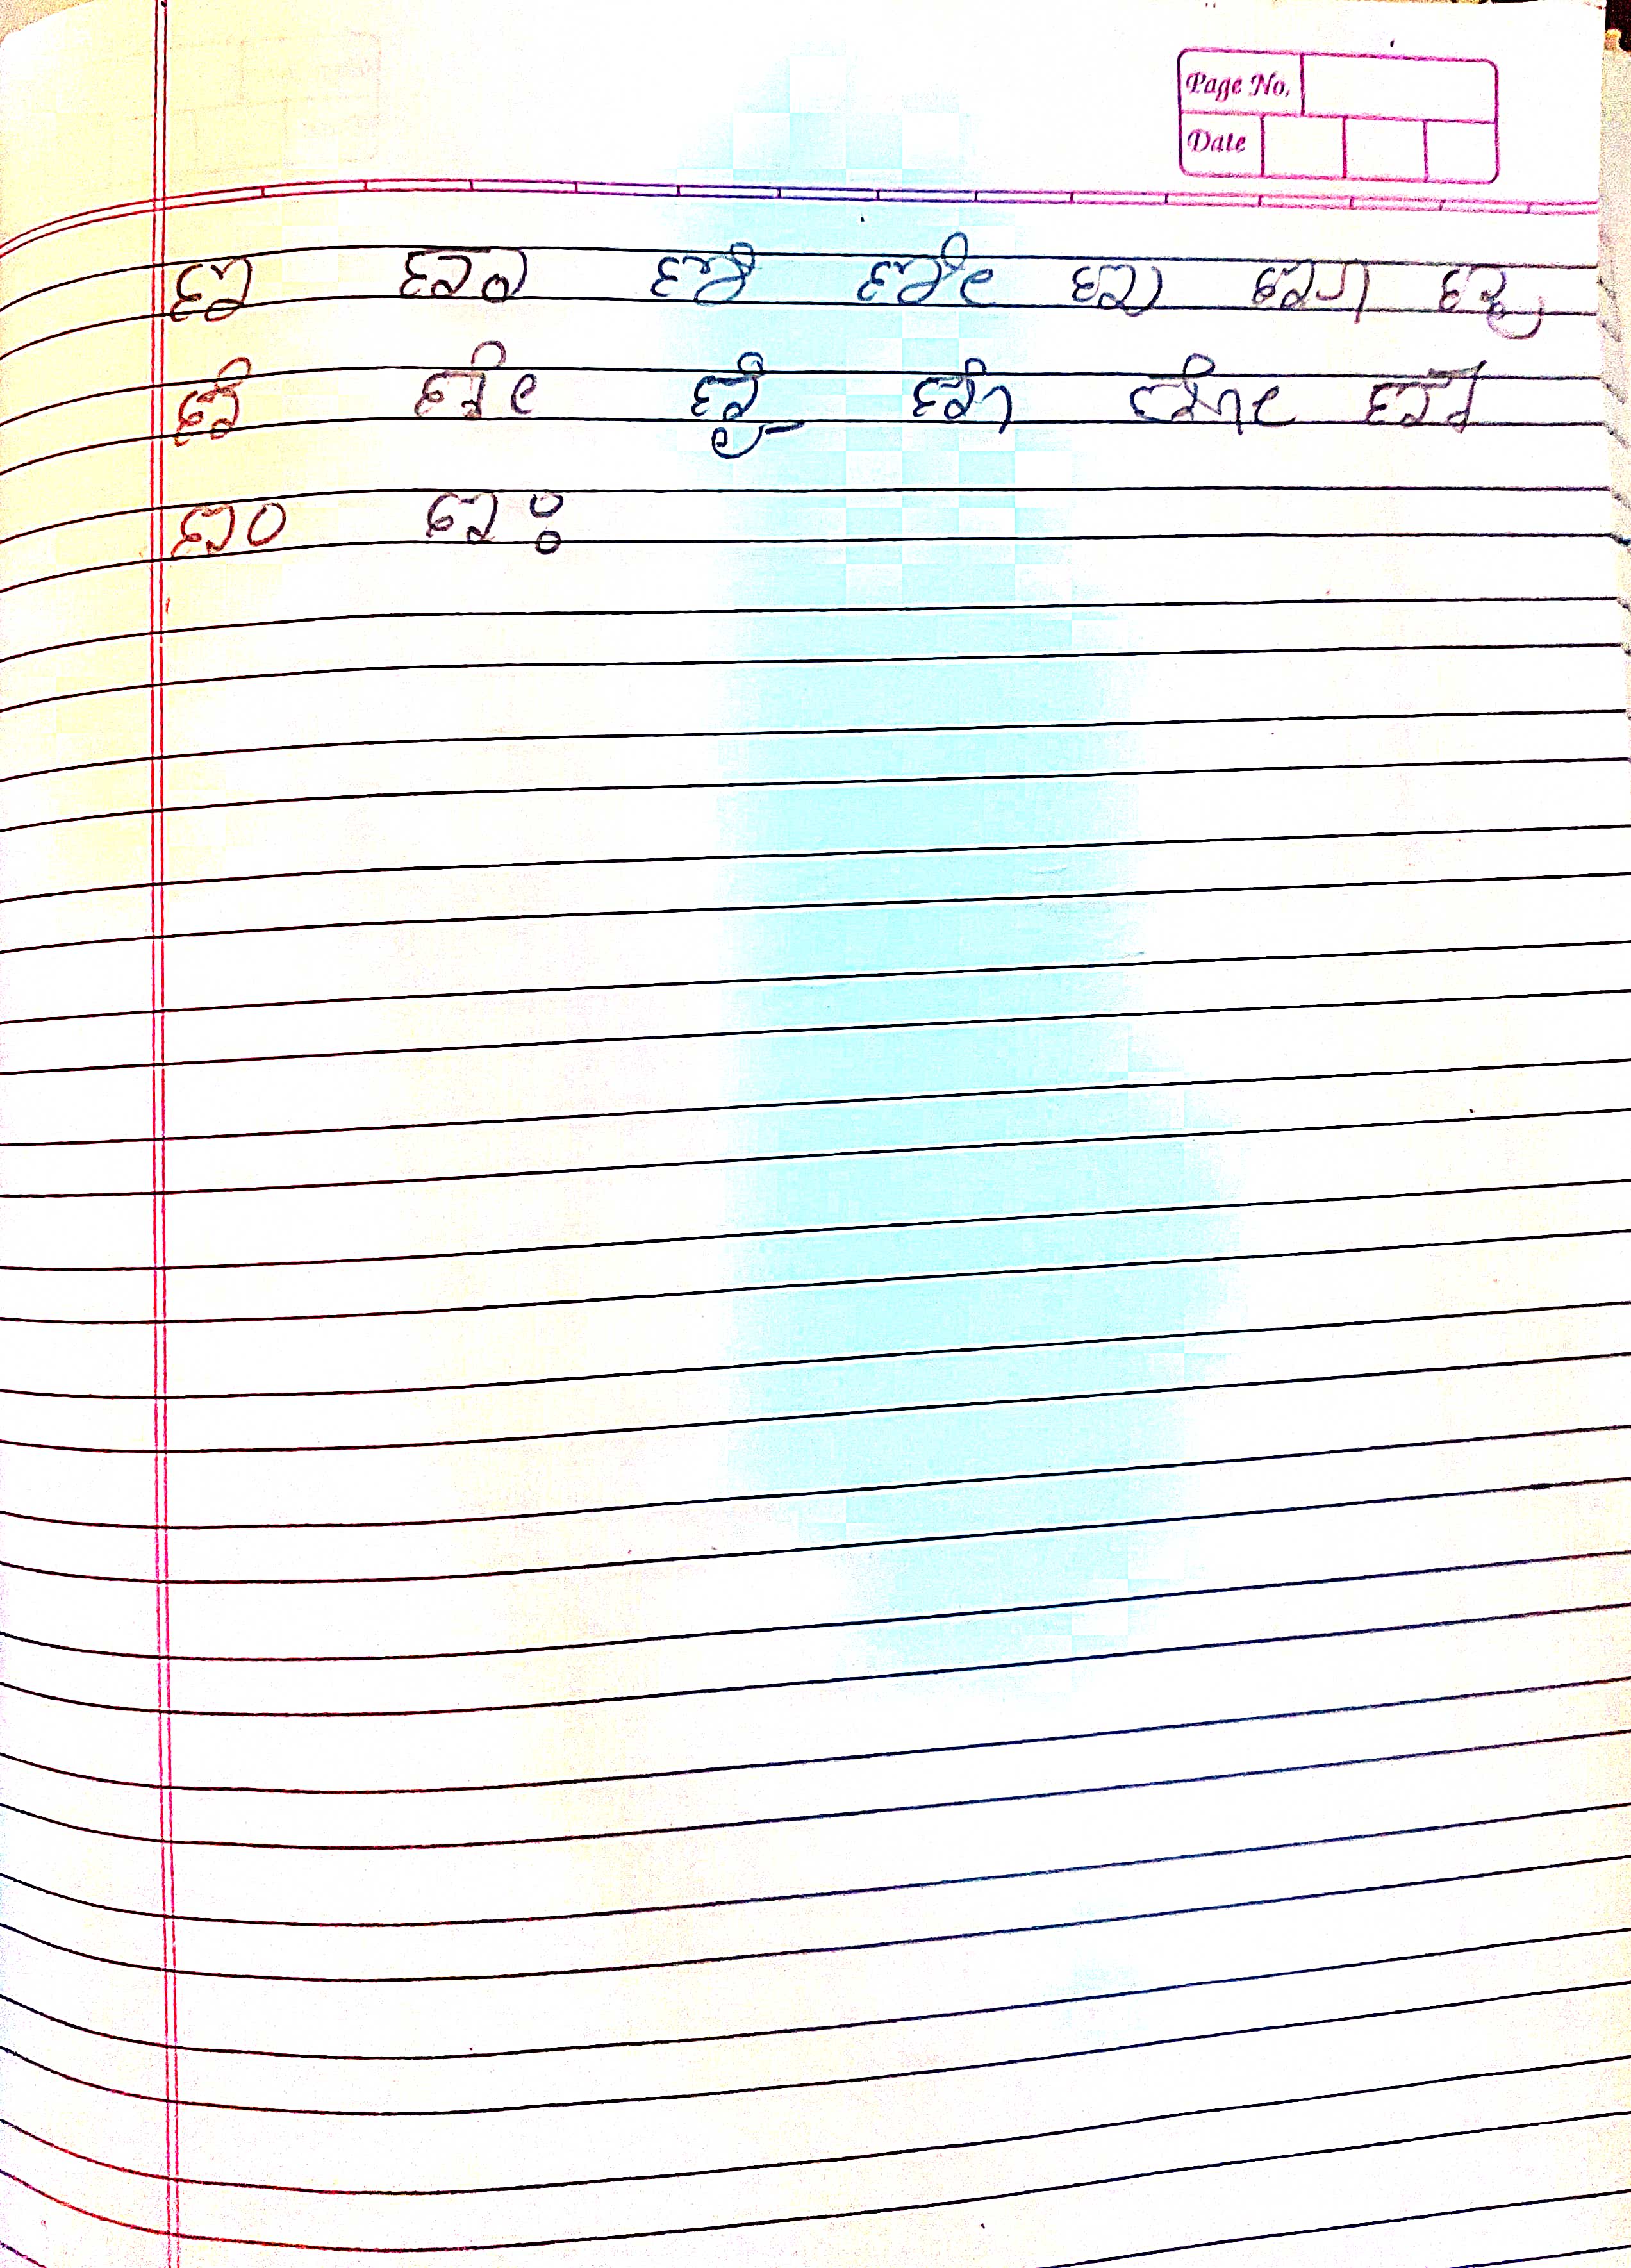 ಜ ಜಾ ಜಿ ಜೀ ಜು ಜೂ ಜೃ
ಜೆ ಜೇ ಜೈ ಜೊ ಜೋ ಜೌ
ಜಂ ಜಃ
Page No.
Date